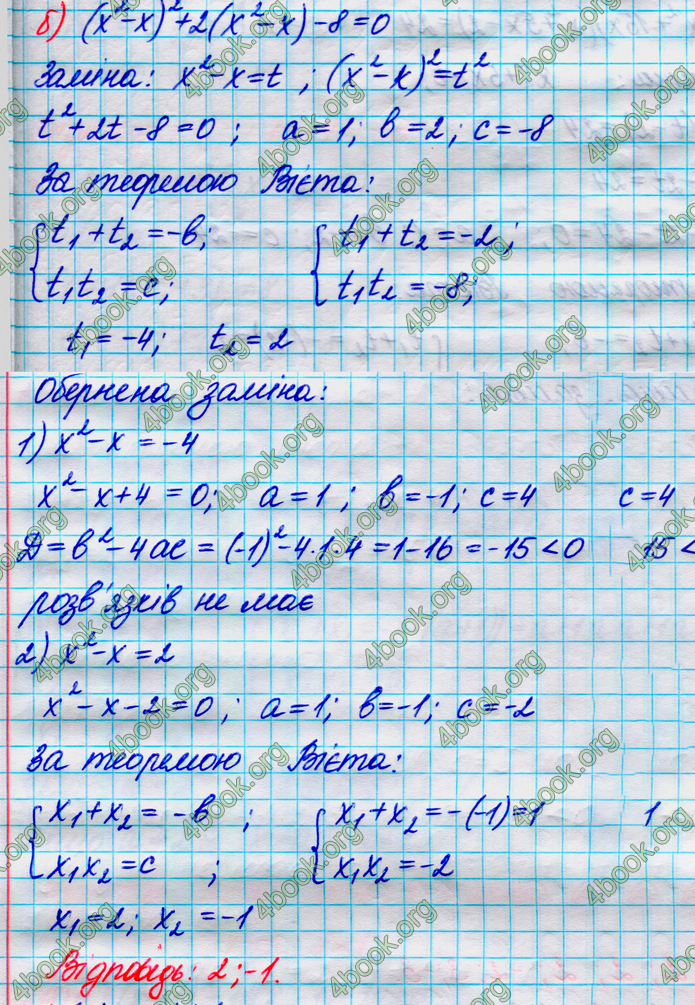 б) (x²-x)²+2(x²-x)-8=0
Заміна: x²-x=t ; (x²-x)²=t²
t²+2t-8=0 ; a=1; в=2; c=-8
За теоремою Вієта:
{t₁+t₂=-в; {t₁+t₂=-2;
t₁t₂=c; t₁t₂=-8;
t₁=-4; t₂=2
Обернена заміна:
1) x²-x=-4
x²-x+4=0; a=1; в=-1; c=4 c=4
Д=в²-4ac=(-1)²-4·1·4=1-16=-15<0 15<
розв'язків не має
2) x²-x=2
x²-x-2=0; a=1; в=-1; c=-2
За теоремою Вієта:
{x₁+x₂=-в ; {x₁+x₂=-(-1)=1 1
x₁x₂=c ; x₁x₂=-2
x₁=2; x₂=-1
Відповідь: 2;-1.
4book.org